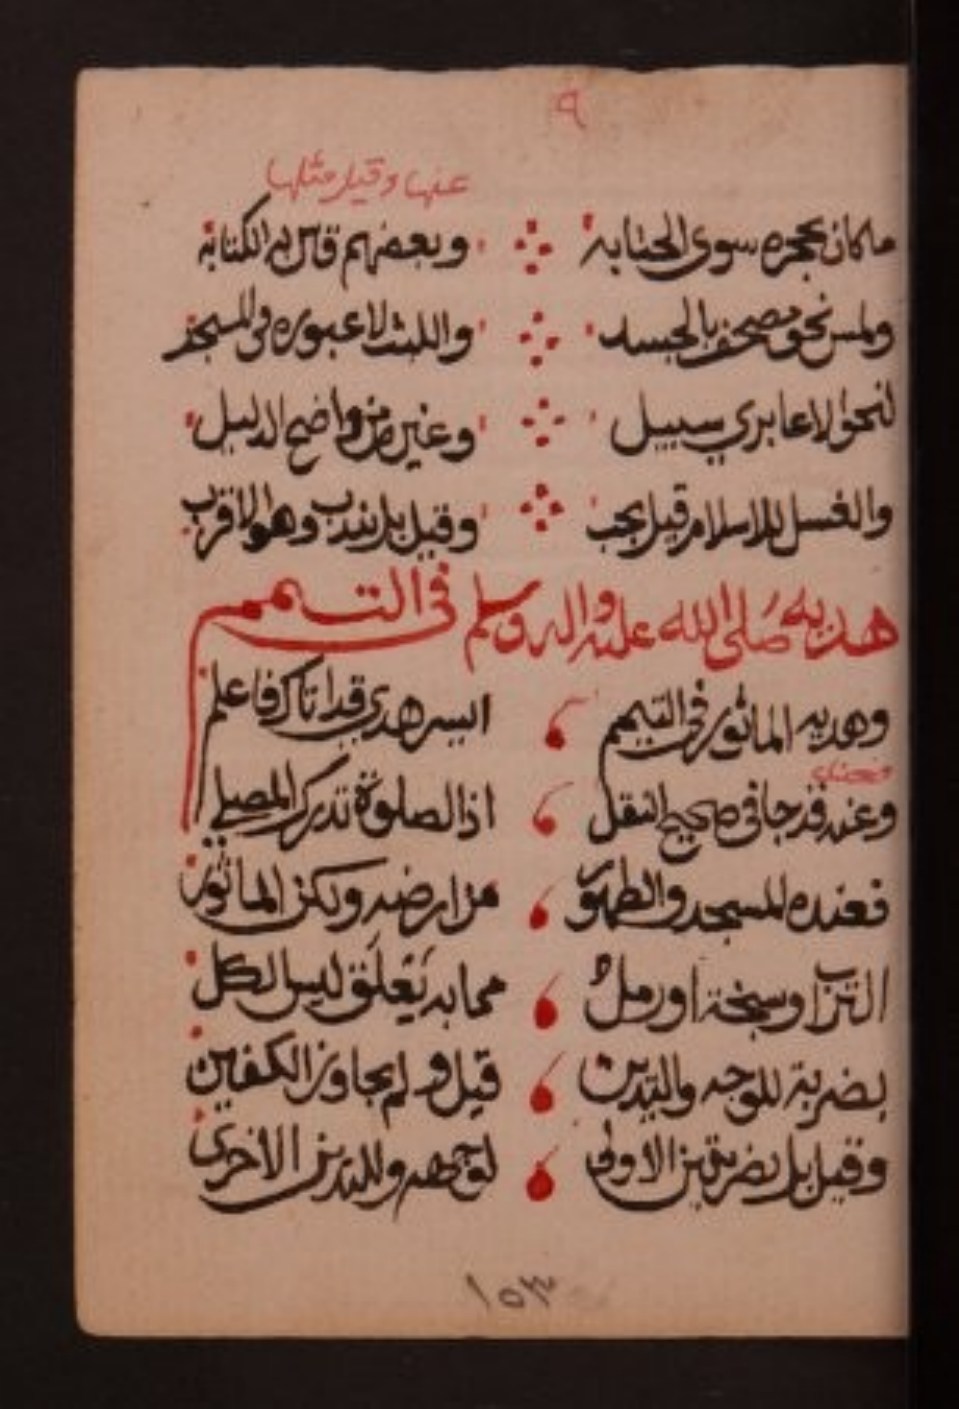 ٩
عنها وقيل مثلها
ماكان يحجره سوى الجنابه وبعضهم قاس به الكتابه
ولمس نحو مصحف بالجسد واللبث لا عبوره في المسجد
لنحو الا عابري سبيل وغيره من واضح الدليل
والغسل للاسلام قيل يجب وقيل بل يندب وهو الاقرب
هديه صلى الله عليه واله وسلم في التيمم
وهديه الماثور في التيمم ايسر هدي قد اتاك فاعلم
وعنه قد جا في صحيح النقل اذ الصلوة تدرك المصلي
فعنده المسجد والطهور من ارضه ولكن الماثور
التراب او سبخة او رمل مما به تعلق ليس الكل
بضربة للوجه واليدين قيل ولم يجاوز الكفين
وقيل بل بضربتين الاولى لوجهه ولليدين الاخرى